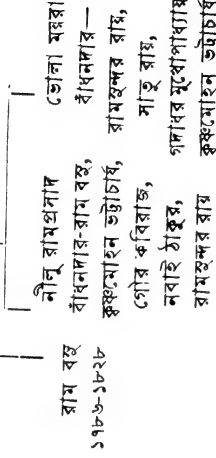 রাম বসু
১৭৮৬-১৮২৮
নীলু রামপ্রসাদ
বাঁধনদার-রাম বসু,
কৃষ্ণমোহন ভট্টাচার্য,
গৌর কবিরাজ,
নবাই ঠাকুর,
রামসুন্দর রায়
ভোলা ময়রা
বাঁধনদার—
রামসুন্দর রায়,
সাতু রায়,
গদাধর মুখোপাধ্যায়
কৃষ্ণমোহন ভট্টাচার্য